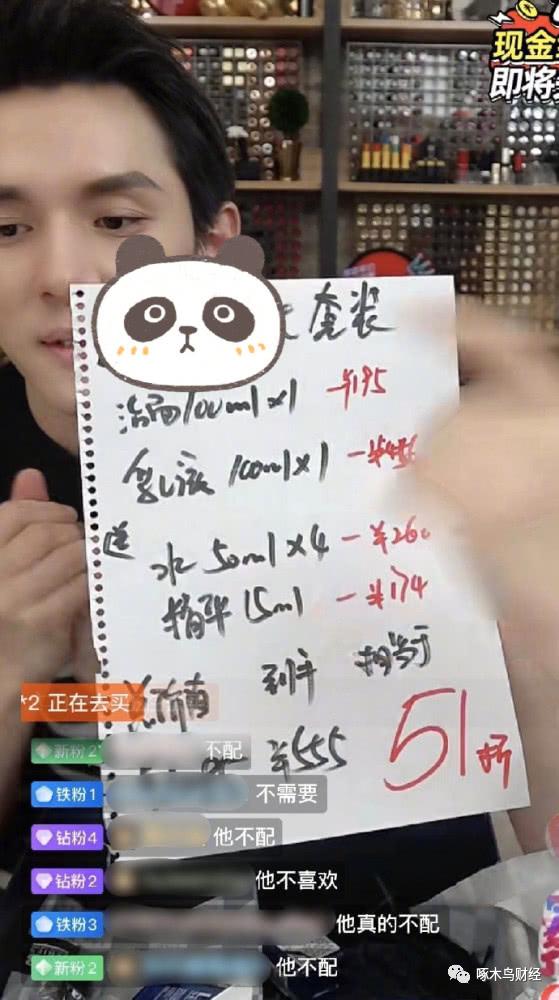 现金
即将
套装
洁面100ml×1 —¥195
乳液100ml×1 —¥456
送
水50ml×4 —¥260
精华15ml —¥174
到手 相当于
¥555 51折
*2 正在去买
新粉2 不配
铁粉1 不需要
钻粉4 他不配
钻粉2 他不喜欢
铁粉3 他真的不配
新粉2 他不配
啄木鸟财经